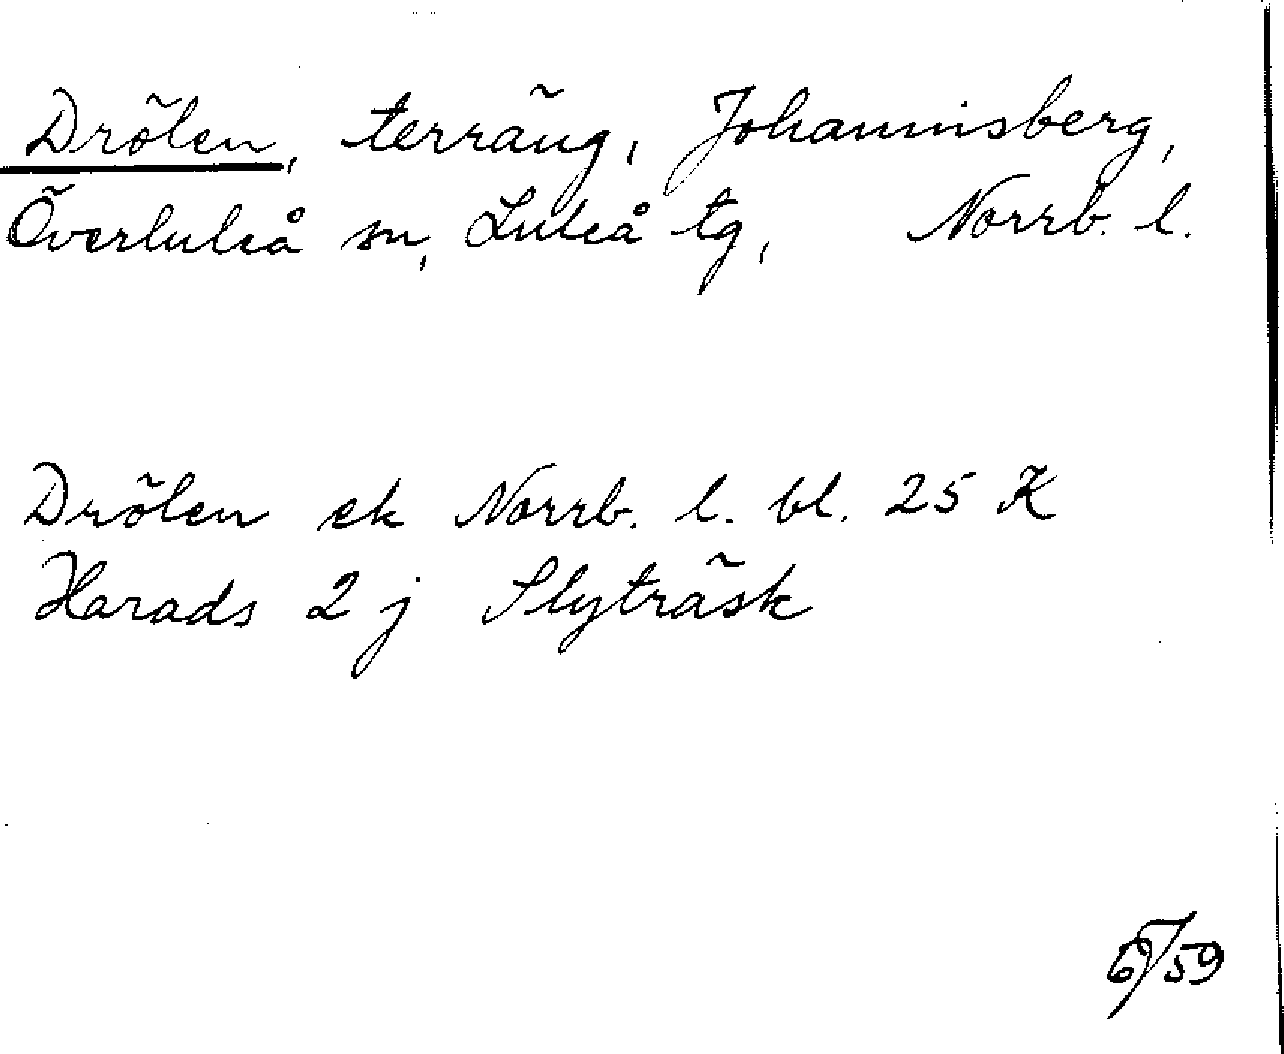 Drölen, terräng, Johannisberg,
Överluleå sn, Luleå tg, Norrb. l.
Drölen ek Norrb. l. bl. 25 K
Harads 2 j Slyträsk